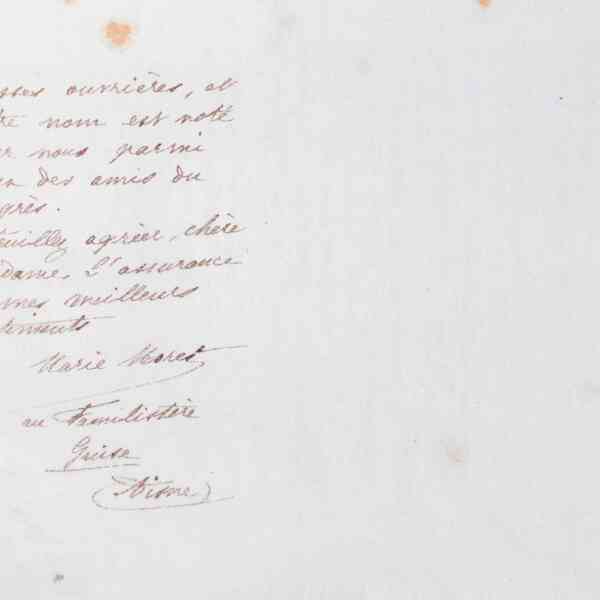 sses ouvrières, et
tre nom est noté
ar nous parmi
en des amis du
grès.
euillez agréer, chère
dame, l'assurance
mes meilleurs
timents
Marie Moret
au Familistère
Guise
(Aisne)